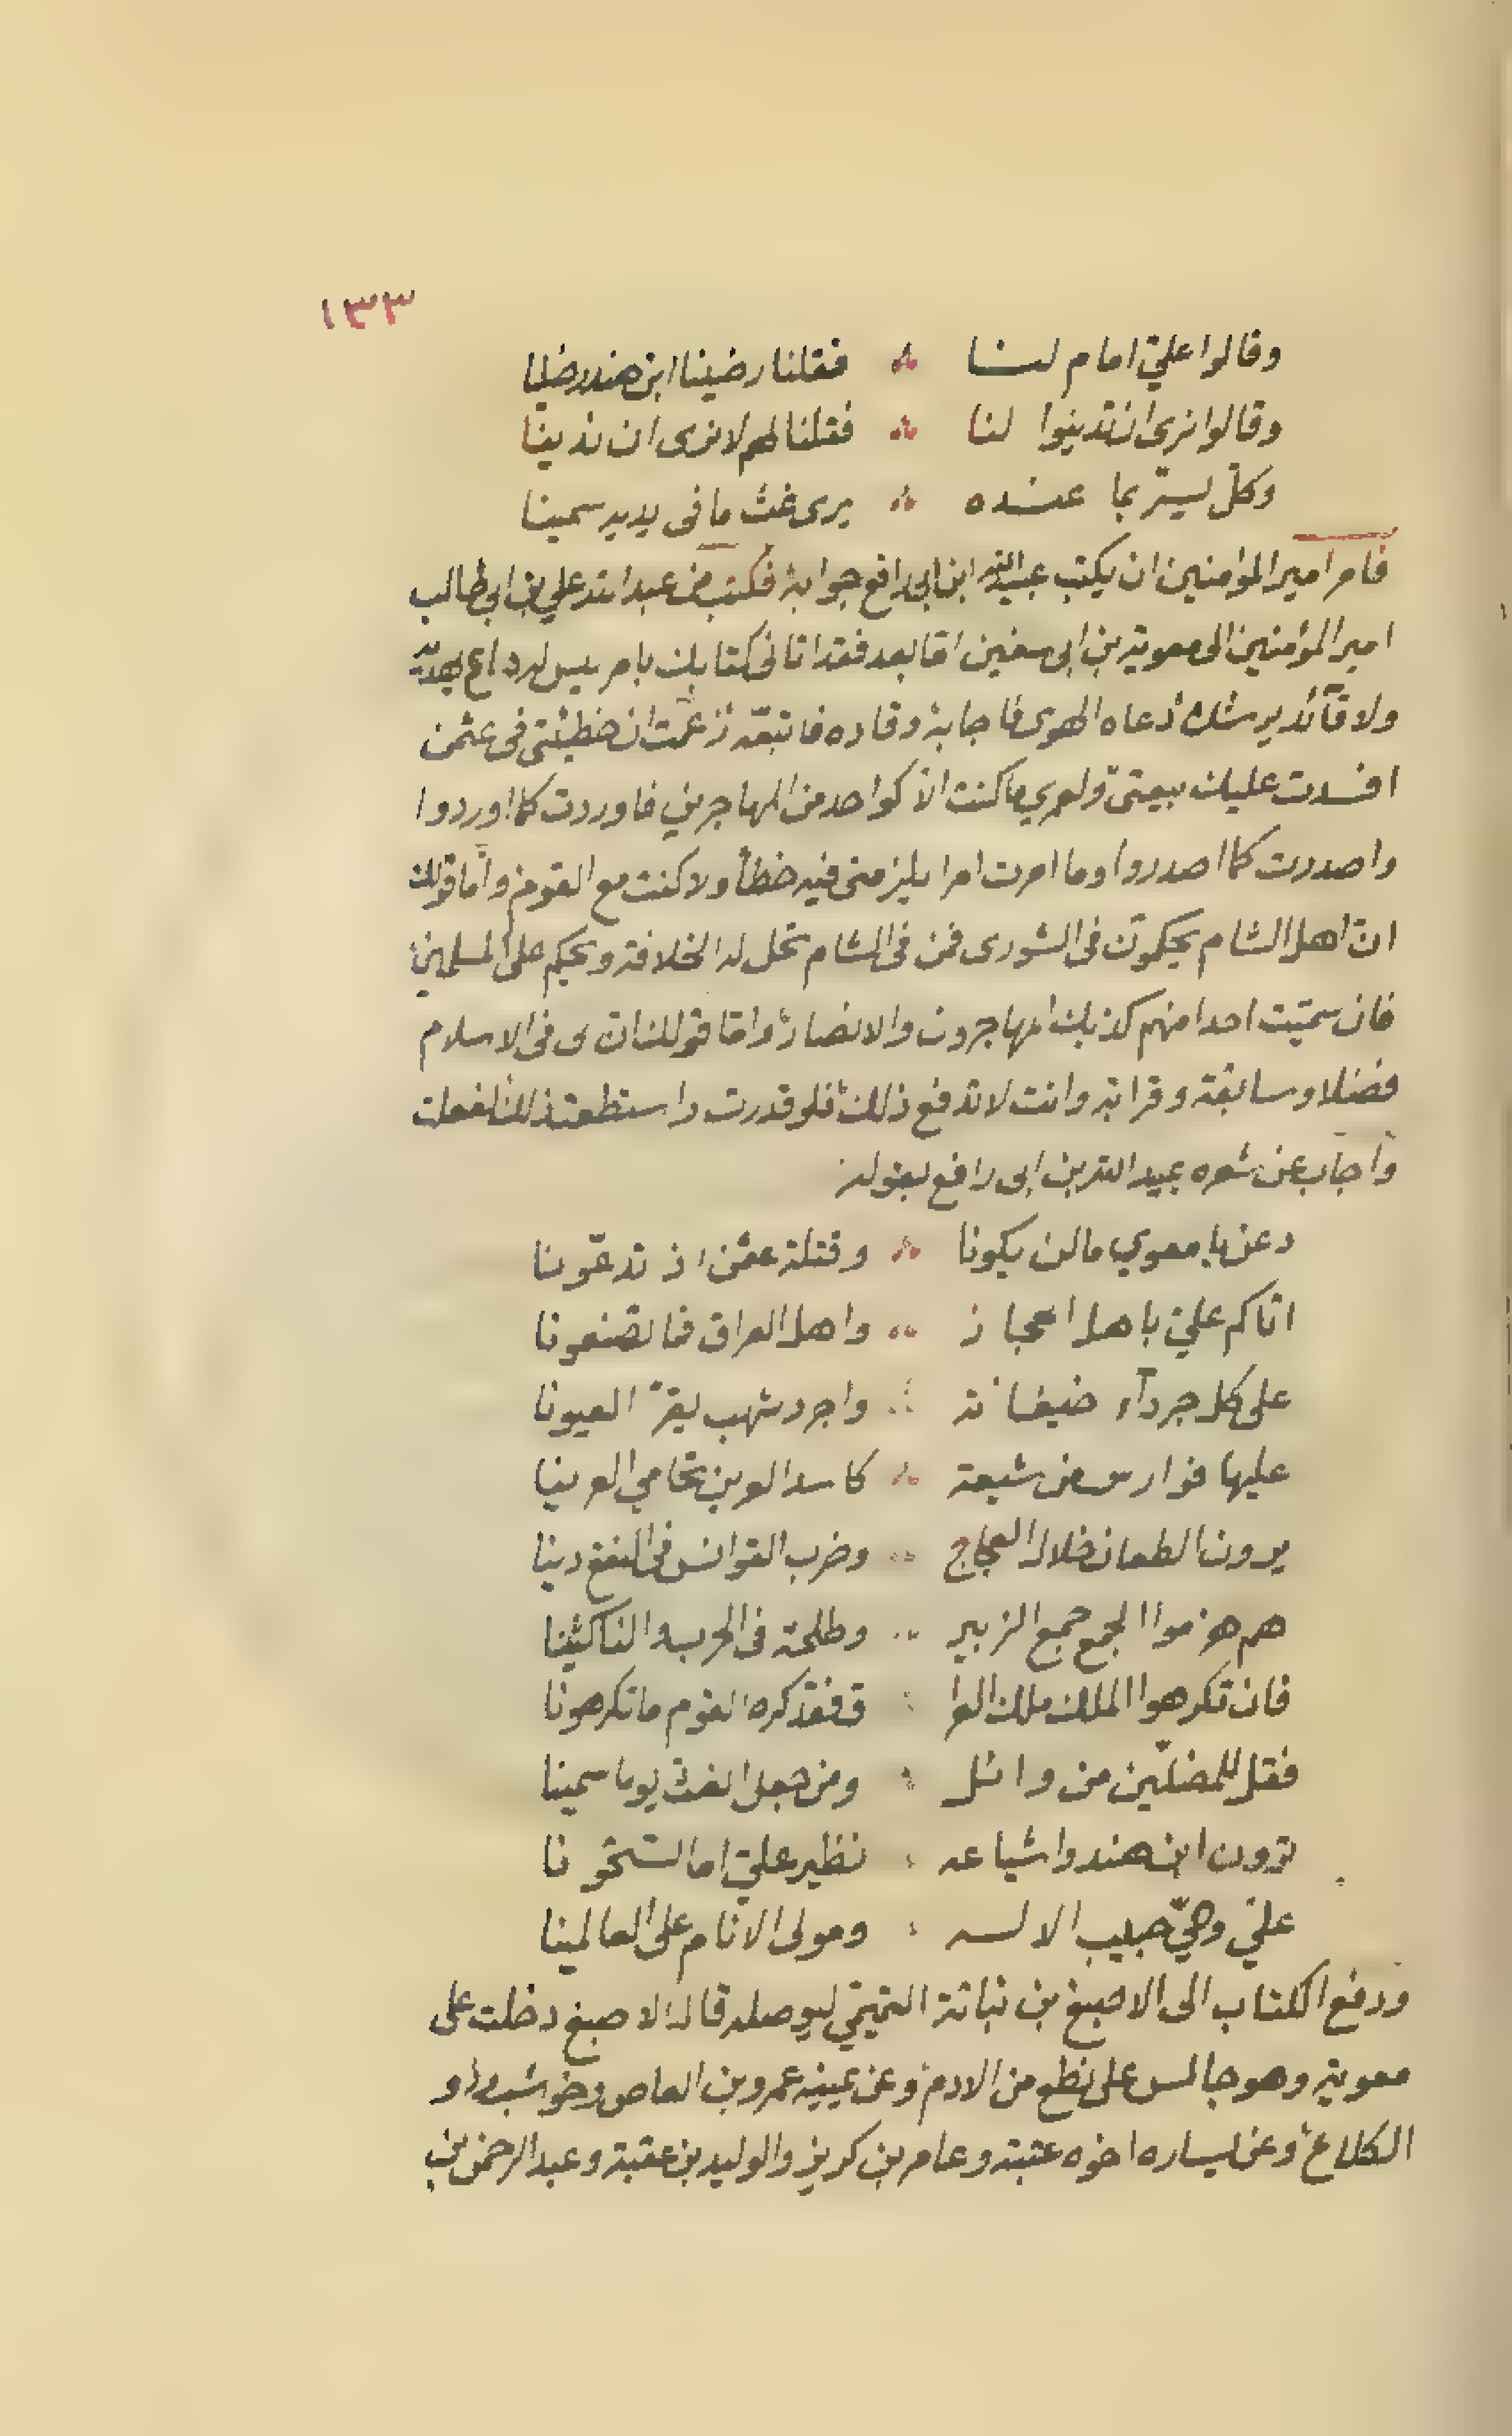 ١٣٣
وقالوا علي امام لنا ∴ فقلنا رضينا ابن هند رضينا
وقالوا نرى ان تدينوا لنا ∴ فقلنا لهم لا نرى ان ندينا
وكل يسرّ بما عنده ∴ يرى غث ما فى يديه سمينا
فامر امير المؤمنين ان يكتب عبيدالله ابن ابى رافع جوابه فكتب من عبد الله علي بن ابي طالب
امير المؤمنين الى معوية بن ابى سفين امّا بعد فقد اتانى كتابك بامر ليس له داع يهديه
ولا قآئد يرشده دعاه الهوى فاجابه وقاده فاتبعّه زعمت ان خطيئتى فى عثمن
افسدت عليك بيعتى ولعمري ما كنت الّا كواحد من المهاجرين فاوردت كما اوردوا
واصدرت كما اصدروا وما امرت امرا يلزمنى فيه خطأ ولا كنت مع القوم وأما قولك
ان اهل الشام يحكمون فى الشورى فمن فى الشام تحل له الخلافة ويحكم على المسلمين
فان سميّت احدا منهم كذبك المهاجرون والانصار وامّا قولك ان لى فى الاسلام
فضلا وسابقة وقرابة وانت لا تدفع ذلك فلو قدرت واستطعت ذلك لفعلت
واجاب عن شعره عبيد الله بن ابى رافع بقوله
دعن يا معوي ما لن يكونا ∴ وقتلة عثمن اذ تدعّونا
اتاكم علي باهل الحجاز ∴ واهل العراق فما تصنعونا
على كل جردآء خيفانة ∴ واجرد شهب يقرّ العيونا
عليها فوارس من شيعة ∴ كاسد العرين تحامي العرينا
يرون الطعان خلال العجاج ∴ وضرب القوانس فى النقع دينا
هم هزموا الجمع جمع الزبير ∴ وطلحة فى الحرب والناكثينا
فان تكرهوا الملك ملك العرا ∴ ق فقد كره القوم ما تكرهونا
فقل للمضلّين من وائل ∴ ومن جعل الغث يوما سمينا
ترون ابن هند واشياعه ∴ نظير علي اما تستحونا
عليّ وصيّ حبيب الاله ∴ ومولى الانام على العالمينا
ودفع الكتاب الى الاصبغ بن نباتة التميمي ليوصله قال الاصبغ دخلت على
معوية وهو جالس على نطع من الادم وعن يمينه عمرو بن العاص وحوشب وذو
الكلاع وعن يساره اخوه عتبة وعامر بن كريز والوليد بن عقبة وعبد الرحمن بن